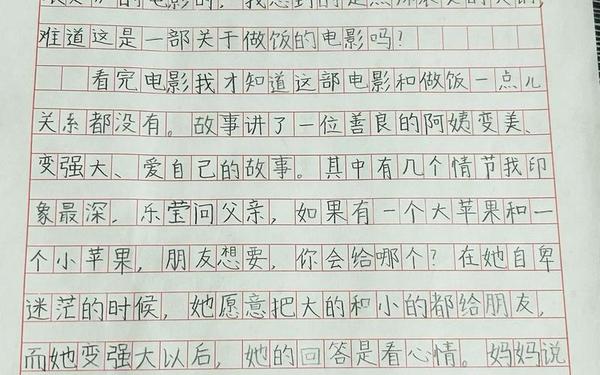 的电影时，我想到的是
难道这是一部关于做饭的电影吗？
看完电影我才知道这部电影和做饭一点儿
关系都没有。故事讲了一位善良的阿姨变美、
变强大、爱自己的故事。其中有几个情节我印
象最深，乐莹问父亲，如果有一个大苹果和一
个小苹果，朋友想要，你会给哪个？在她自卑
迷茫的时候，她愿意把大的和小的都给朋友，
而她变强大以后，她的回答是看心情。妈妈说